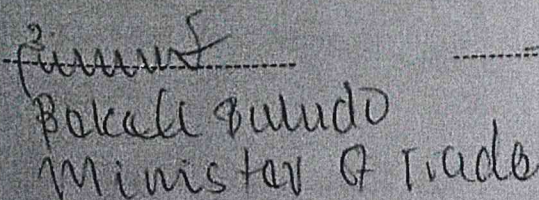 Bakali Suludo
Minister of Trade